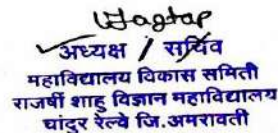 Jagtap
अध्यक्ष / सचिव
महाविद्यालय विकास समिती
राजर्षी शाहु विज्ञान महाविद्यालय
चांदुर रेल्वे जि.अमरावती